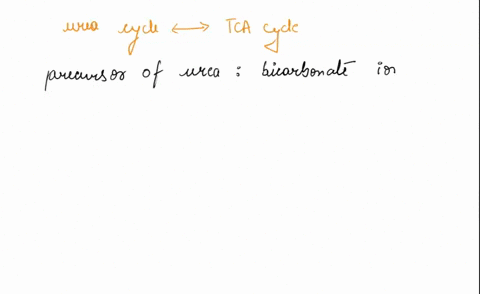 urea cycle ⟷ TCA cycle
precursor of urea : bicarbonate ion